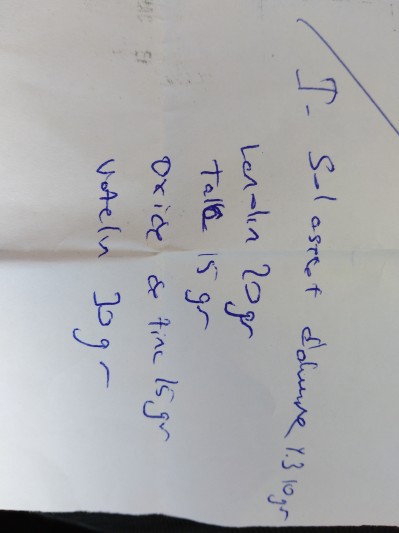 I- Sol asetat d'alumine %3 10 gr
Lanolin 20 gr
Talk 15 gr
Oxide de zinc 15 gr
Vazelin 30 gr